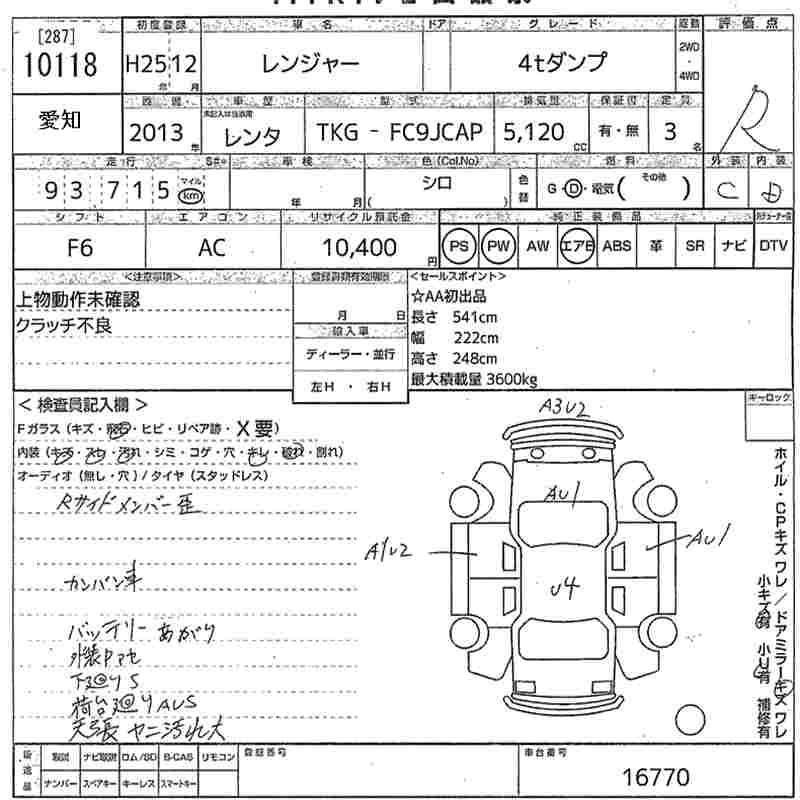 [287] 初度登録 車名 ドア グレード 駆動 評価点
10118 H25 12 レンジャー 4tダンプ 2WD・4WD R
年 月
愛知 車歴 型式 排気量 保証書 定員
2013年 未記入は自家用 レンタ TKG - FC9JCAP 5,120cc 有・無 3名
走行 車検 色(Col.No) 燃料 外装 内装
93,715 マイル km 年 月 シロ ( 色替 G・D・電気( その他 ) C D
シフト エアコン リサイクル預託金 純正装備品
F6 AC 10,400円 PS PW AW エアB ABS 革 SR ナビ DTV
<注意事項> 登録書類有効期限 <セールスポイント>
上物動作未確認 ☆AA初出品
クラッチ不良 月 日 長さ 541cm
輸入車 幅 222cm
ディーラー・並行 高さ 248cm
左H ・ 右H 最大積載量 3600kg
< 検査員記入欄 > キーロック
Fガラス (キズ・飛石・ヒビ・リペア跡・X要)
内装 (キズ・スレ・汚れ・シミ・コゲ・穴・キレ・破れ・割れ)
オーディオ (無し・穴) / タイヤ (スタッドレス)
Rサイドメンバー歪
カンバン車
バッテリーあがり
外装Pマセ
下廻りS
荷台廻りAUS
天張ヤニ汚れ大
A3U2
AU1
A1U2
AU1
U4
ホイル・CPキズ ワレ / ドアミラーキズ ワレ
小キズ有 小U有 補修有
取説 ナビ取説 ロム/SD B-CAS リモコン 登録番号 車台番号
ナンバー スペアキー キーレス スマートキー 16770